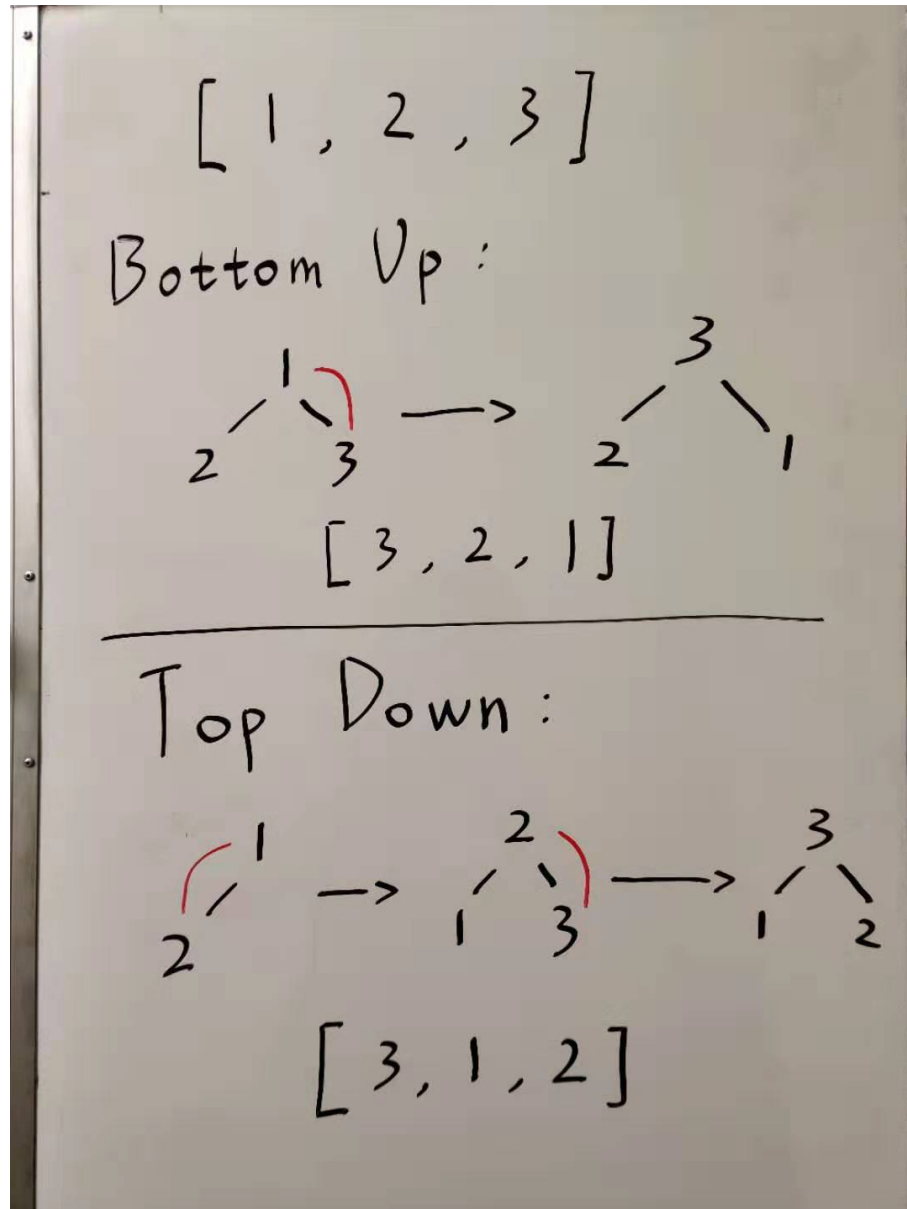 [ 1 , 2 , 3 ]
Bottom Up :
1 3
2 3 2 1
[ 3 , 2 , 1 ]
Top Down :
1 2 3
2 1 3 1 2
[ 3 , 1 , 2 ]